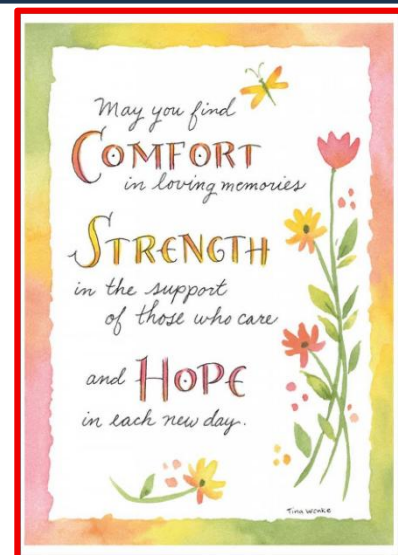 May you find
COMFORT
in loving memories
STRENGTH
in the support
of those who care
and HOPE
in each new day.
Tina Wenke